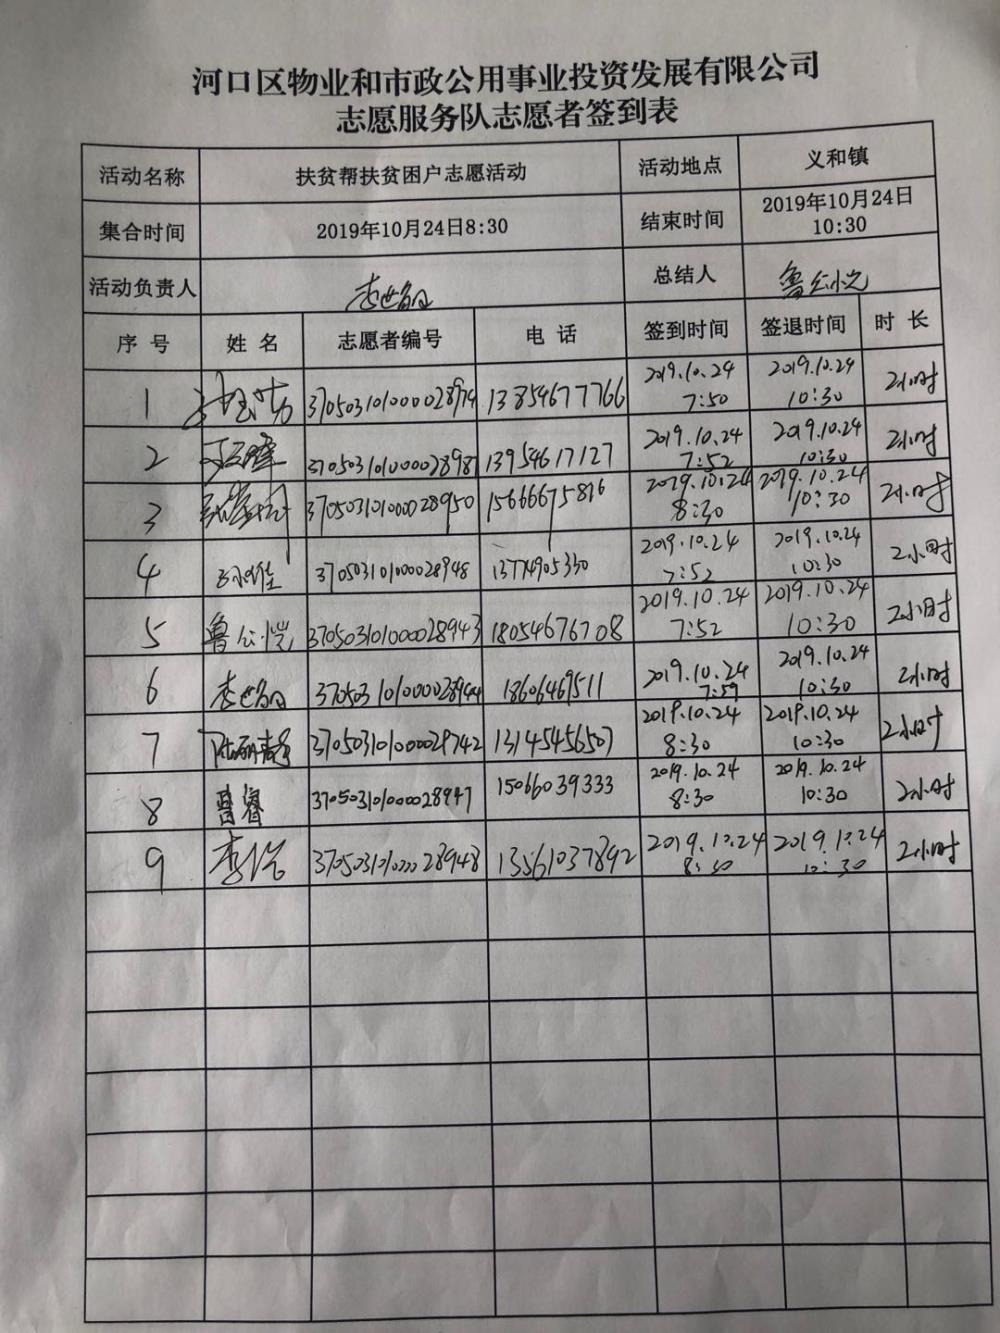 河口区物业和市政公用事业投资发展有限公司
志愿服务队志愿者签到表
活动名称 扶贫帮扶贫困户志愿活动 活动地点 义和镇
集合时间 2019年10月24日8:30 结束时间 2019年10月24日
10:30
活动负责人 李世 总结人 鲁公恺
序 号 姓 名 志愿者编号 电 话 签到时间 签退时间 时 长
1 13854677766 2019.10.24 7:50 2019.10.24 10:30 2小时
2 37050310100002898 13954617127 2019.10.24 7:52 2019.10.24 10:30 2小时
3 370503101000028950 15666675816 2019.10.24 8:30 2019.10.24 10:30 2小时
4 370503101000028948 13774905330 2019.10.24 7:52 2019.10.24 10:30 2小时
5 鲁公恺 370503101000028943 18054676708 2019.10.24 7:52 2019.10.24 10:30 2小时
6 李世 370503101000028944 18606469511 2019.10.24 7:59 2019.10.24 10:30 2小时
7 370503101000029742 13145456507 2019.10.24 8:30 2019.10.24 10:30 2小时
8 370503101000028947 15066039333 2019.10.24 8:30 2019.10.24 10:30 2小时
9 李 370503101000028948 13561037892 2019.10.24 8:30 2019.10.24 10:30 2小时